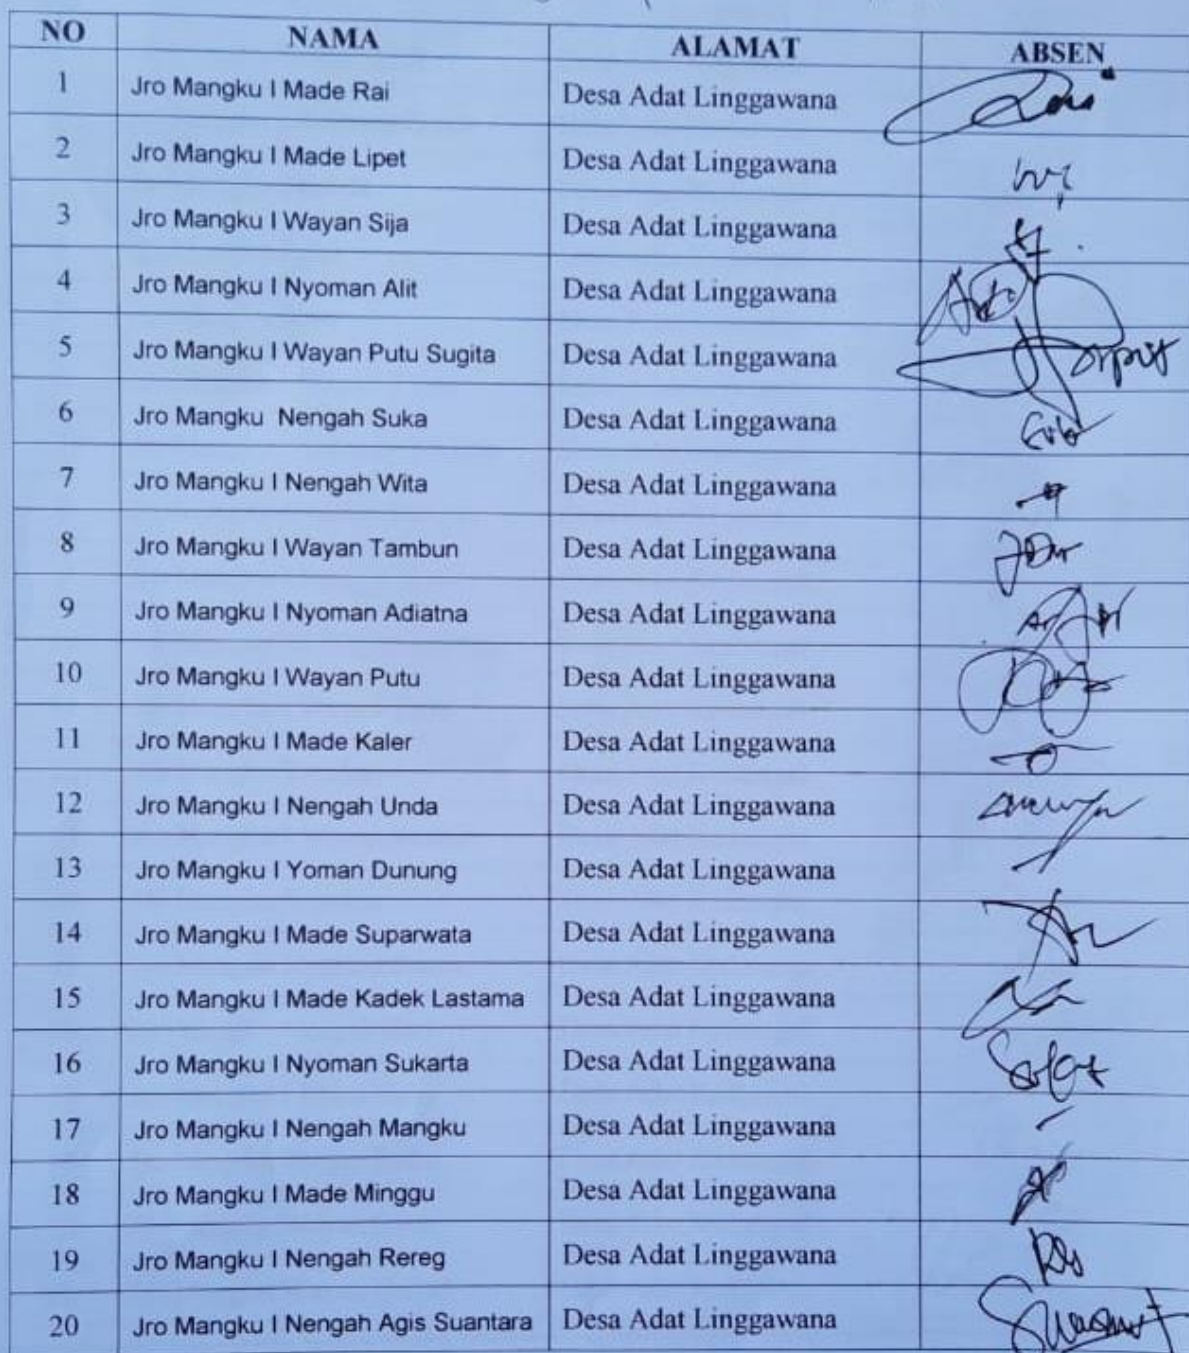 NO NAMA ALAMAT ABSEN
1 Jro Mangku I Made Rai Desa Adat Linggawana
2 Jro Mangku I Made Lipet Desa Adat Linggawana
3 Jro Mangku I Wayan Sija Desa Adat Linggawana
4 Jro Mangku I Nyoman Alit Desa Adat Linggawana
5 Jro Mangku I Wayan Putu Sugita Desa Adat Linggawana
6 Jro Mangku Nengah Suka Desa Adat Linggawana
7 Jro Mangku I Nengah Wita Desa Adat Linggawana
8 Jro Mangku I Wayan Tambun Desa Adat Linggawana
9 Jro Mangku I Nyoman Adiatna Desa Adat Linggawana
10 Jro Mangku I Wayan Putu Desa Adat Linggawana
11 Jro Mangku I Made Kaler Desa Adat Linggawana
12 Jro Mangku I Nengah Unda Desa Adat Linggawana
13 Jro Mangku I Yoman Dunung Desa Adat Linggawana
14 Jro Mangku I Made Suparwata Desa Adat Linggawana
15 Jro Mangku I Made Kadek Lastama Desa Adat Linggawana
16 Jro Mangku I Nyoman Sukarta Desa Adat Linggawana
17 Jro Mangku I Nengah Mangku Desa Adat Linggawana
18 Jro Mangku I Made Minggu Desa Adat Linggawana
19 Jro Mangku I Nengah Rereg Desa Adat Linggawana
20 Jro Mangku I Nengah Agis Suantara Desa Adat Linggawana